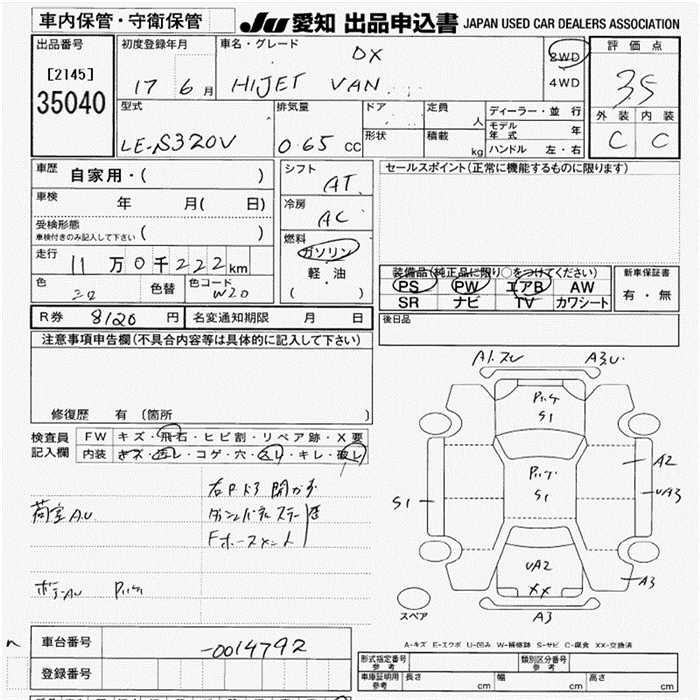 車内保管・守衛保管
JU 愛知 出品申込書 JAPAN USED CAR DEALERS ASSOCIATION
出品番号
[2145]
35040
初度登録年月
17 6月
車名・グレード
DX
HIJET VAN
2WD
4WD
評価点
3.5
外装 内装
C C
型式
LE-S320V
排気量
0.65 CC
ドア
形状
定員
人
積載
kg
ディーラー・並行
モデル年式 年
ハンドル 左・右
車歴
自家用・( )
車検
年 月( 日)
受検形態
車検付きのみ記入して下さい ( )
走行
11万0千222km
色
色替
色コード
W20
シフト
AT
冷房
AC
燃料
ガソリン
軽・油
( )
セールスポイント(正常に機能するものに限ります)
装備品(純正品に限り○をつけてください)
PS PW エアB AW
SR ナビ TV カワシート
新車保証書
有・無
R券 8120 円
名変通知期限 月 日
後日品
注意事項申告欄(不具合内容等は具体的に記入して下さい)
修復歴 有 (箇所 )
検査員
記入欄
FW キズ・飛石・ヒビ割・リペア跡・X要
内装 キズ・汚レ・コゲ・穴・スレ・キレ・破レ
荷室A.U
A3
A2
UA3
S1
S1
S1
UA2
XX
A3
A3
スペア
A-キズ E-エクボ U-凹み W-補修跡 S-サビ C-腐食 XX-交換済
車台番号
-0014792
登録番号
形式指定番号
参考
類別区分番号
参考
車庫証明用
参考
長さ cm 幅 cm 高さ cm